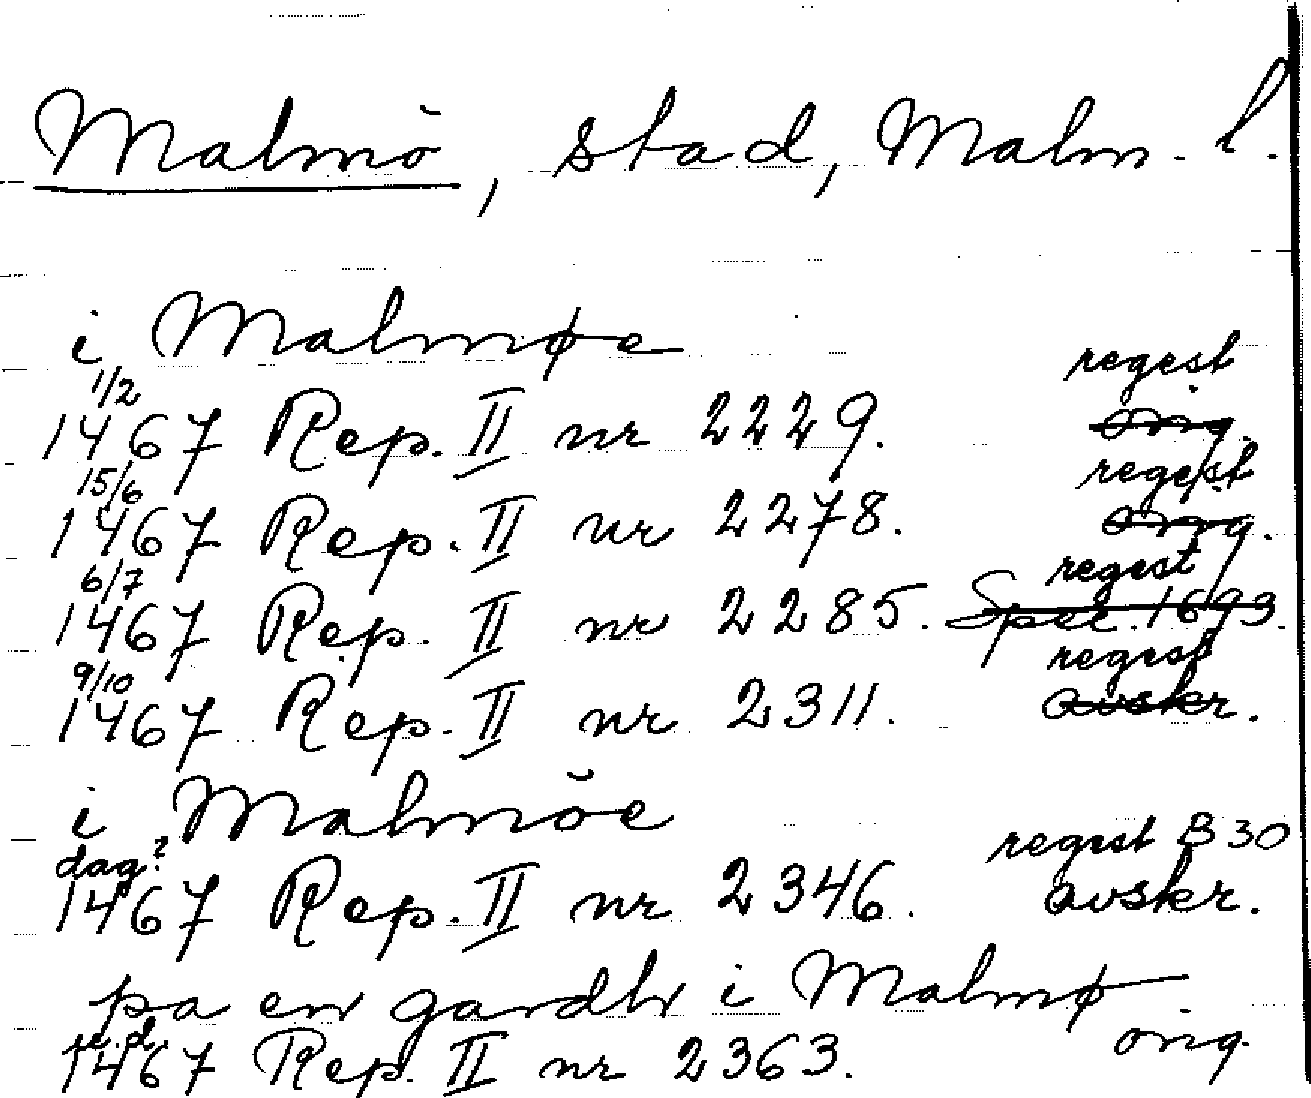 Malmö, stad, Malm. l.
i Malmøe
1/2 regest
1467 Rep. II nr 2229. orig.
15/6 regest
1467 Rep. II nr 2278. orig.
6/7 regest
1467 Rep. II nr 2285. Spec. 1693.
9/10 regest
1467 Rep. II nr 2311. avskr.
i Malmöe
dag? regest B 30
1467 Rep. II nr 2346. avskr.
pa en gardh i Malmø
u.d. orig.
1467 Rep. II nr 2363.